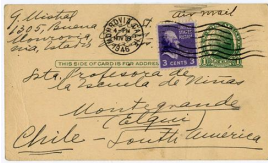 G. Mistral
1305, Buena
Monrovia,
Air mail
MONROVIA, CALIF.
3 CENTS 3
THIS SIDE OF CARD IS FOR ADDRESS
Srta. Profesora de
la Escuela de Niñas
Montegrande
(Elqui)
Chile South América